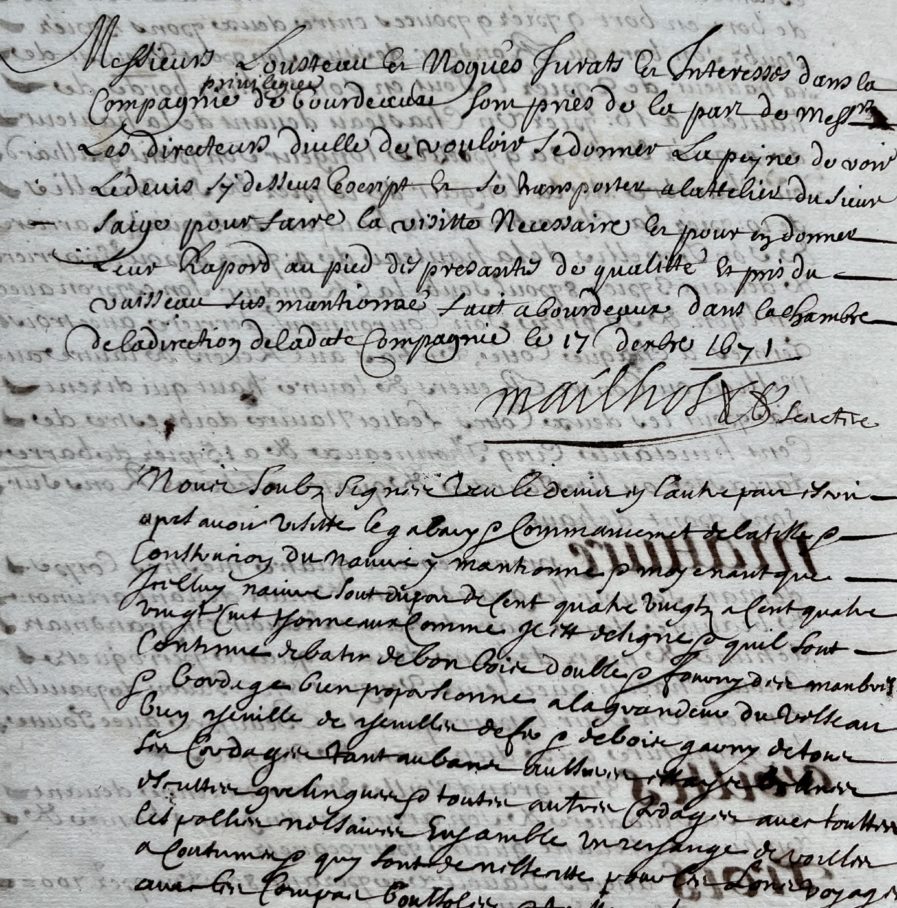 Messieurs Lousteau et Nogués Jurats et Interessés dans la
Compagnie privilegiee de bourdeaux sont priés de la part de Messrs
Les directeurs dicelle de vouloir se donner La peyne de voir
Le devis cy dessus escript et se transporter a lattelier du sieur
saige pour faire la visitte Necessaire et pour en donner
Leur Raport au pied des presantes de qualitté et pris du
vaisseau sus mantionné faict a bourdeaux dans la chambre
de la direction de lad. Compagnie le 17 decbre 1671
mailhos secretre
Nous soubz signes veu le devis en l'autre part escri
apres avoir visitte le gabary & Commancemet de la quille &
Construcion du navire y mantionné & moyenant que
Icelluy navire soit du port de Cent quatre vingtz a Cent quatre
vingt cinq thonneaux Comme il est designé & quil soit
Continué de batir de bon bois double & fourny de manbres
& bordage bien proporsionné a la grandeur du vesseau
bien cheville de chevilles de fer & de bois garny de tous
ses Cordages tant aubans
& touttes autres Cordages avec touttes
les pollies nessaires Ensamble un rechange de voilles
a Coutume & quy sont de nessesitte pour les Longs voyages
avec les Compas boussolles